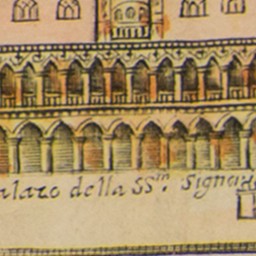 alazo della SS^m. Signo